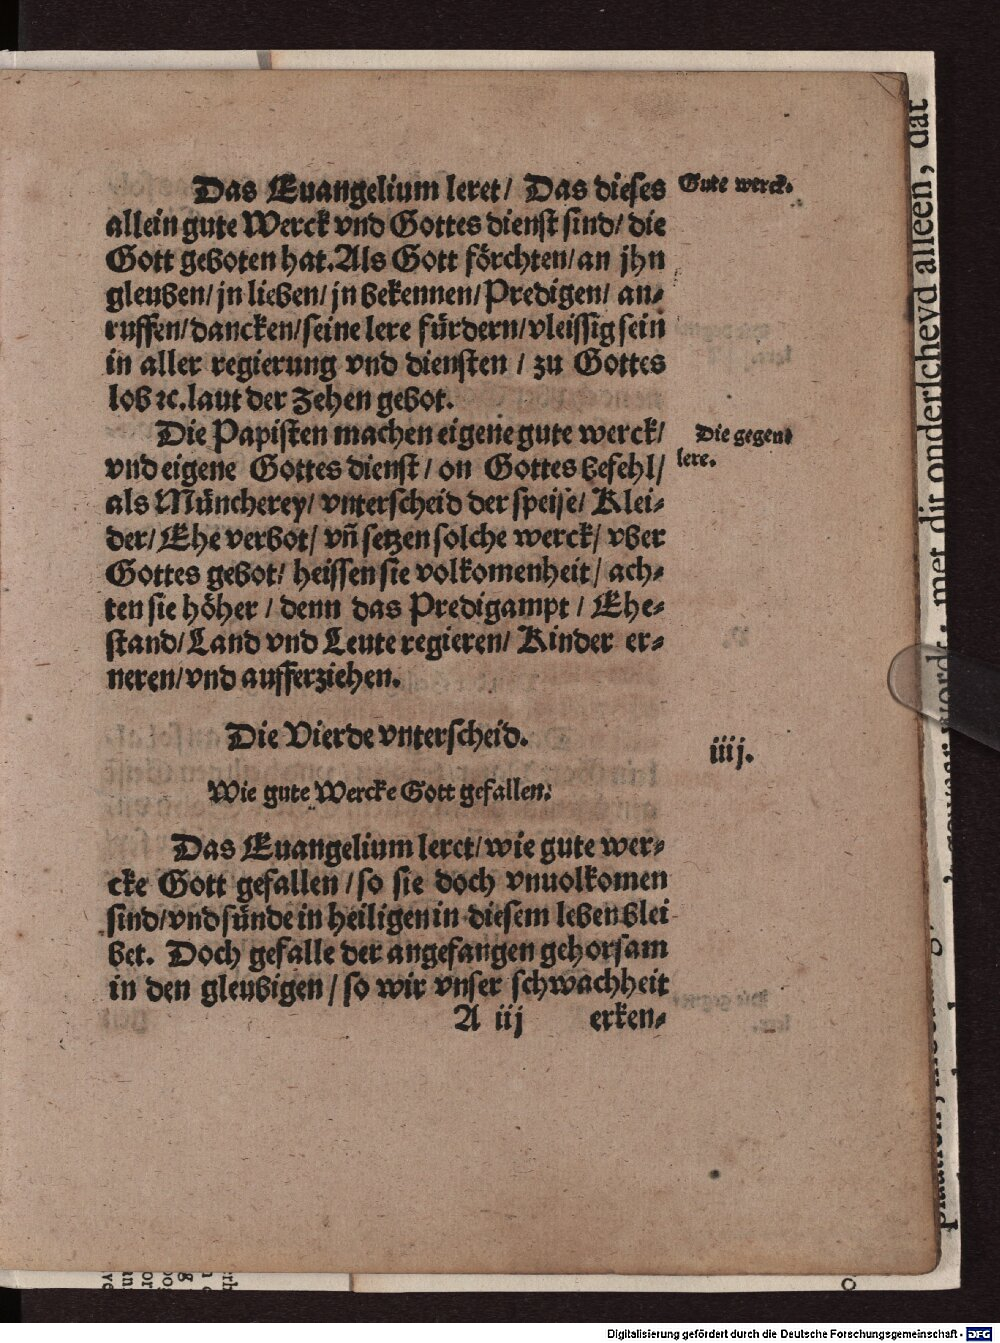 Das Euangelium leret/ Das dieses
Gute werck.
allein gute Werck vnd Gottes dienst sind/ die
Gott geboten hat. Als Gott förchten/ an jhn
gleuben/ jn lieben/ jn bekennen/ Predigen/ an-
ruffen/ dancken/ seine lere fürdern/ vleissig sein
in aller regierung vnd diensten / zu Gottes
lob ꝛc. laut der Zehen gebot.
Die Papisten machen eigene gute werck/
Die gegen
lere.
vnd eigene Gottes dienst/ on Gottes befehl/
als Müncherey/ vnterscheid der speise/ Klei-
der/ Ehe verbot/ vñ setzen solche werck/ vber
Gottes gebot/ heissen sie volkomenheit/ ach-
ten sie höher / denn das Predigampt / Ehe-
stand/ Land vnd Leute regieren/ Kinder er-
neren/ vnd aufferziehen.
Die Vierde vnterscheid.
iiij.
Wie gute Wercke Gott gefallen.
Das Euangelium leret/ wie gute wer-
cke Gott gefallen / so sie doch vnuolkomen
sind/ vnd sünde in heiligen in diesem leben blei
bet. Doch gefalle der angefangen gehorsam
in den gleubigen / so wir vnser schwachheit
A iij erken-
met dir onderlicheyd alleen, dat
Digitalisierung gefördert durch die Deutsche Forschungsgemeinschaft - DFG